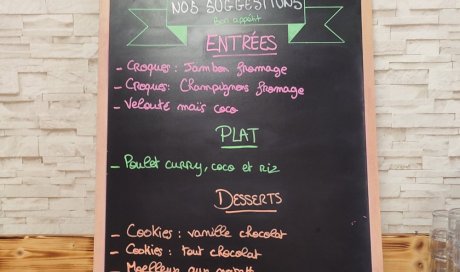 NOS SUGGESTIONS
Bon appétit
ENTRÉES
- Croques : Jambon fromage
- Croques : Champignons fromage
- Velouté maïs coco
PLAT
- Poulet curry, coco et riz
DESSERTS
- Cookies : vanille chocolat
- Cookies : tout chocolat
- Moelleux aux